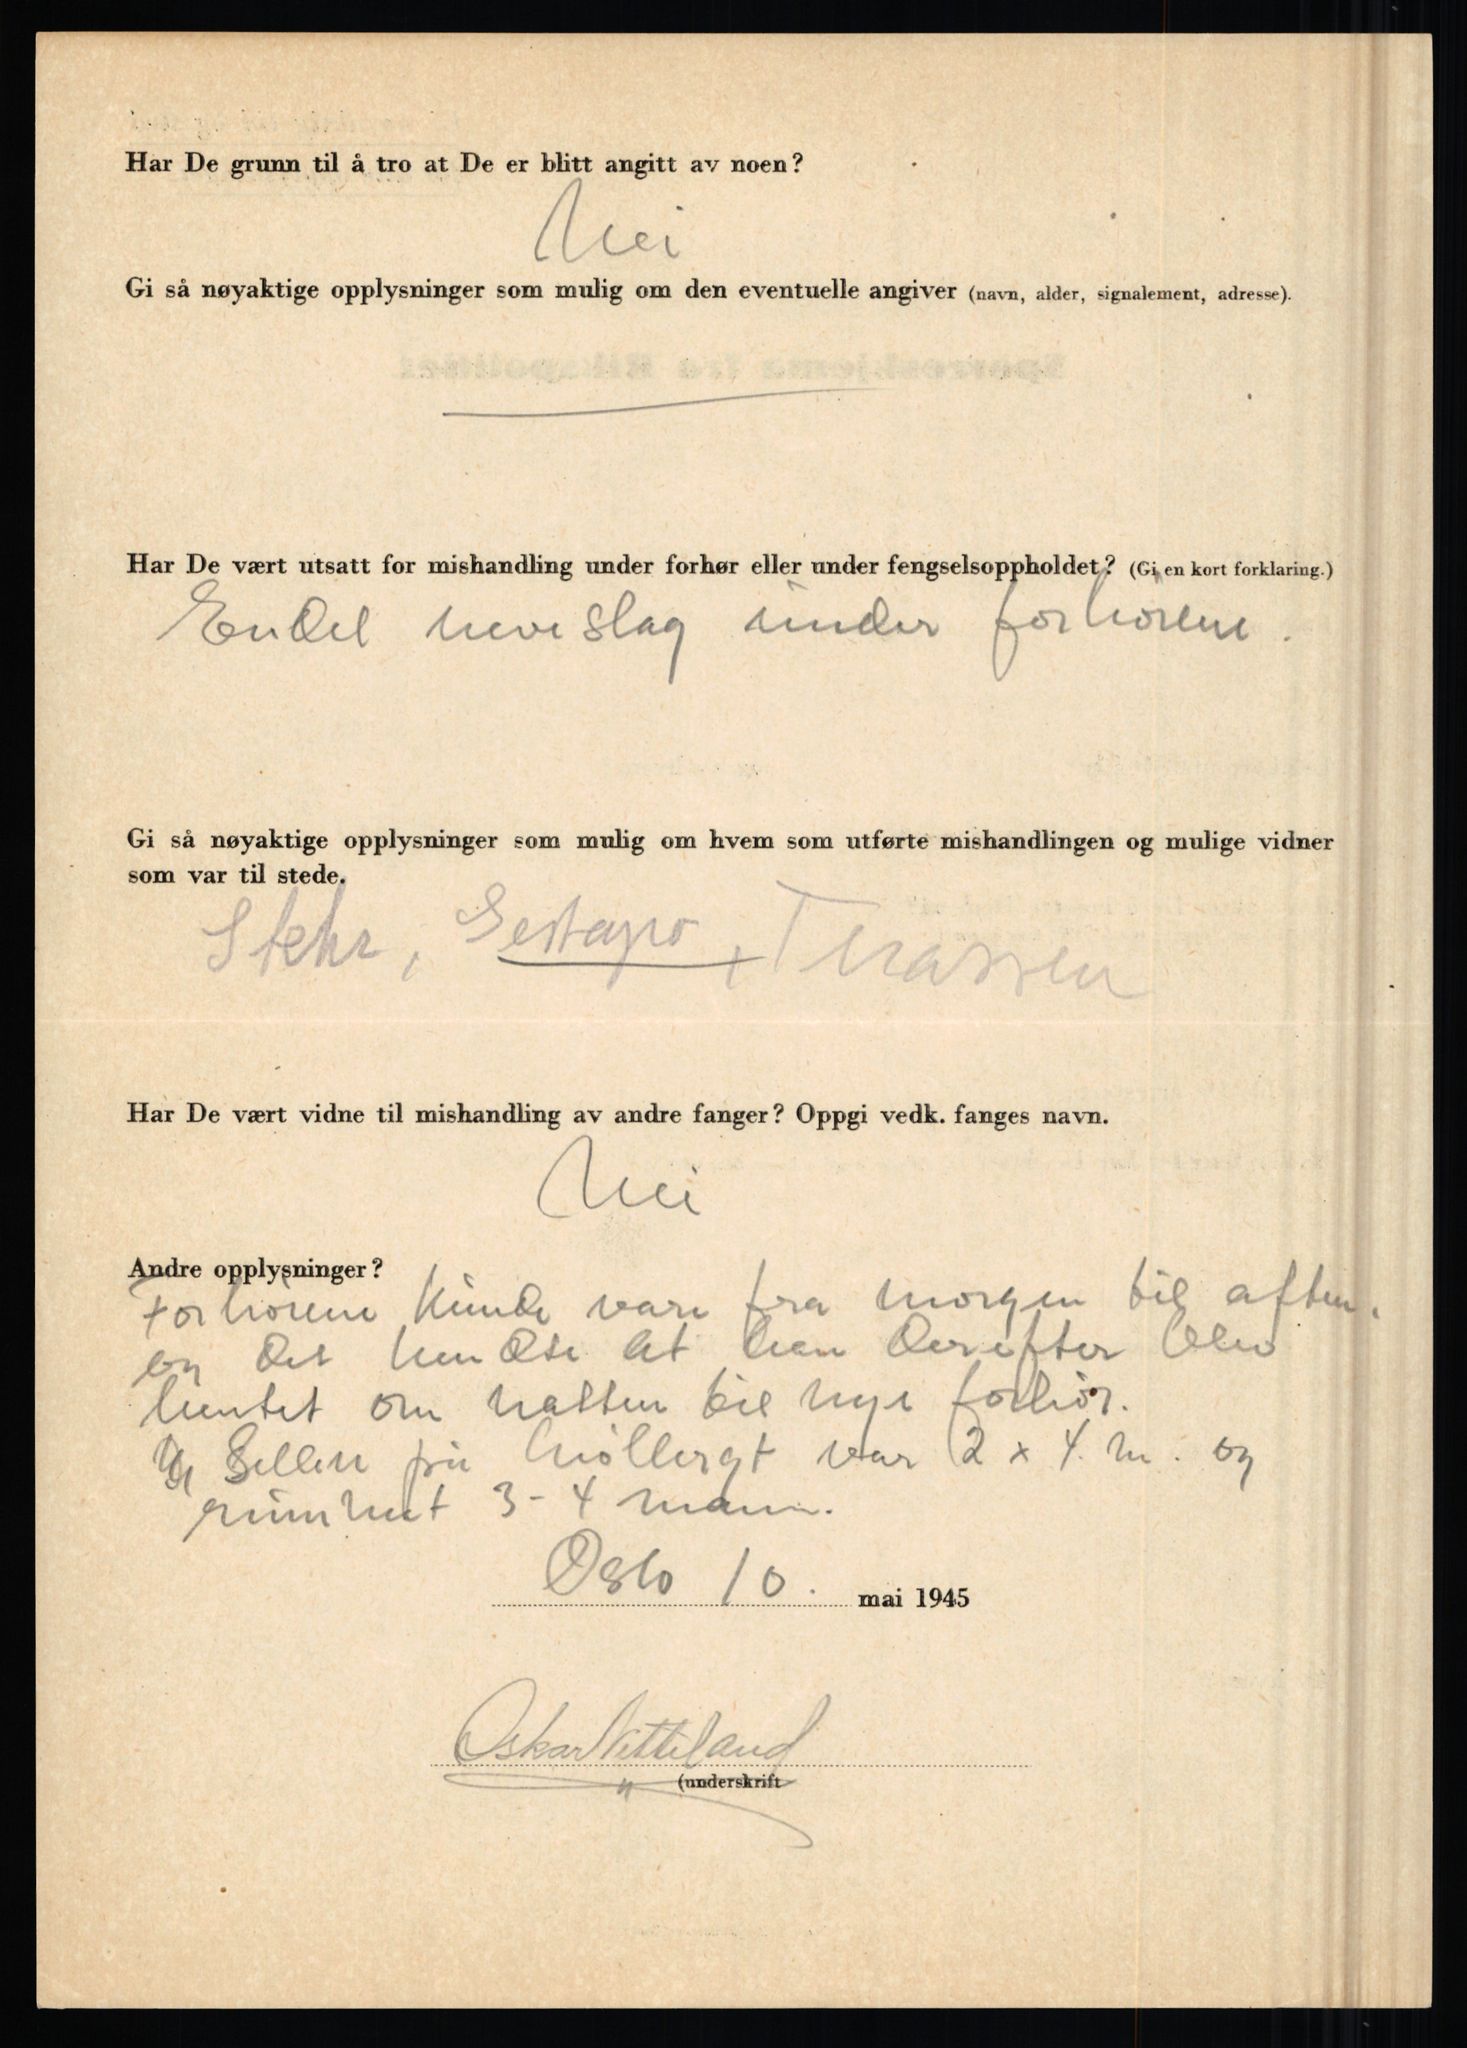 Har De grunn til å tro at De er blitt angitt av noen?
Nei
Gi så nøyaktige opplysninger som mulig om den eventuelle angiver (navn, alder, signalement, adresse).
Har De vært utsatt for mishandling under forhør eller under fengselsoppholdet? (Gi en kort forklaring.)
Endel neveslag under forhörene.
Gi så nøyaktige opplysninger som mulig om hvem som utførte mishandlingen og mulige vidner
som var til stede.
Stehr, Gestapo, Terassen
Har De vært vidne til mishandling av andre fanger? Oppgi vedk. fanges navn.
Nei
Andre opplysninger?
Forhörene kunde vare fra morgen til aften,
og det hendte at han derefter blev
hentet om natten til nye forhör.
Cellen på Möllergt var 2 x 4 m. og
rummet 3-4 mann.
Oslo 10. mai 1945
Oskar Vitteland
(underskrift